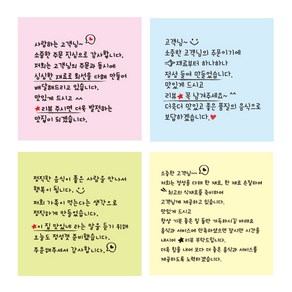 사랑하는 고객님~
소중한 주문 진심으로 감사합니다.
저희는 고객님의 주문과 동시에
싱싱한 재료로 최선을 다해 만들어
배달해드리고 있습니다.
맛있게 드시고 ^^
★리뷰 주시면 더욱 발전하는
맛집이 되겠습니다.
고객님~
소중한 고객님의 주문이기에
재료부터 하나하나
정성 들여 만들었습니다.
맛있게 드시고
리뷰★ 꼭 남겨주세요~ ^^
더욱더 맛있고 좋은 품질의 음식으로
보답하겠습니다.♥
정직한 음식이 좋은 사람을 만나서
행복이 됩니다.
저희 가족이 먹는다는 생각으로
정직하게 만들었습니다.
★이 집 맛있네 라는 말을 듣기 위해
오늘도 정성껏 준비했습니다.
주문해주셔서 감사합니다.
소중한 고객님~
저희는 정성을 다해 한 재료, 한 재료 손질하여
최고의 식재료를 준비하여
고객님께 제공하고 있습니다.
맛있게 드시고
항상 기분 좋은 일 가득하시길 바래요
음식과 서비스에 만족하셨으면 잠시만 시간을
내시어 ★리뷰 부탁드립니다.
다음번에 이용 시 보다 더 좋은 음식과 서비스를
제공하도록 노력하겠습니다.